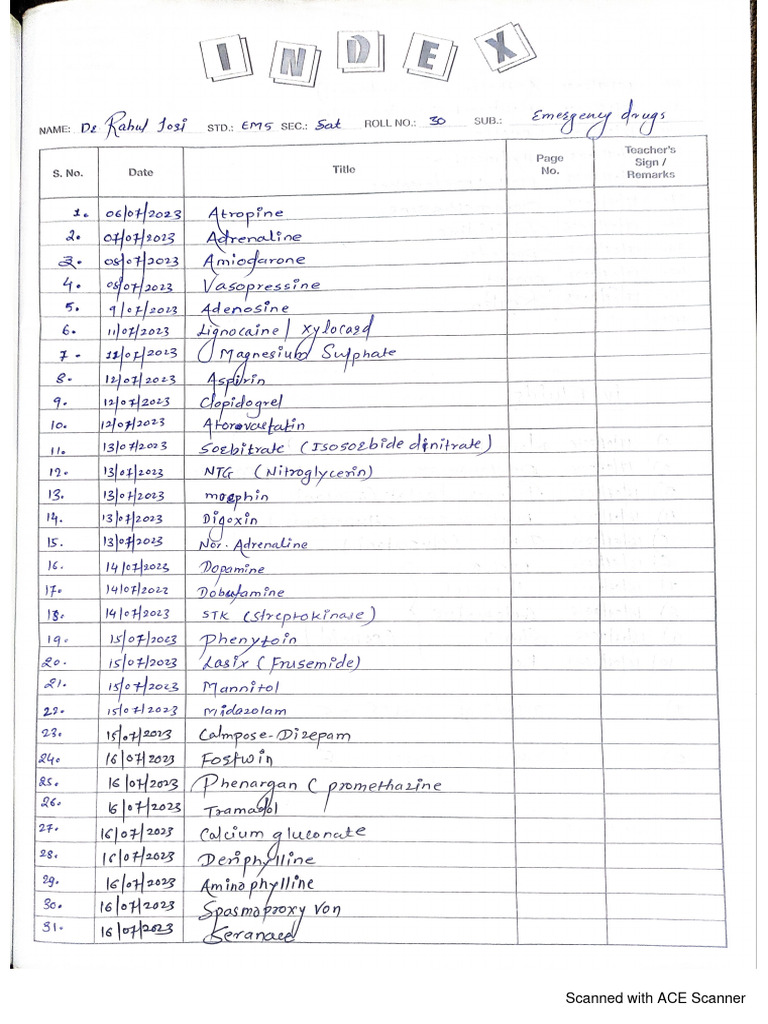 INDEX
NAME: Dr Rahul Josi STD.: EMS SEC.: Sat ROLL NO.: 30 SUB.: Emergency drugs
S. No. Date Title Page No. Teacher's Sign / Remarks
1. 06/07/2023 Atropine
2. 07/07/2023 Adrenaline
3. 08/07/2023 Amiodarone
4. 08/07/2023 Vasopressine
5. 9/07/2023 Adenosine
6. 11/07/2023 Lignocaine/ Xylocard
7. 11/07/2023 Magnesium Sulphate
8. 12/07/2023 Aspirin
9. 12/07/2023 Clopidogrel
10. 12/07/2023
11. 13/07/2023 Sorbitrate (Isosorbide dinitrate)
12. 13/07/2023 NTG (Nitroglycerin)
13. 13/07/2023 morphin
14. 13/07/2023 Digoxin
15. 13/07/2023 Nor. Adrenaline
16. 14/07/2023 Dopamine
17. 14/07/2022 Dobutamine
18. 14/07/2023 STK (Streptokinase)
19. 15/07/2023 Phenytoin
20. 15/07/2023 Lasix (Frusemide)
21. 15/07/2023 Mannitol
22. 15/07/2023 Midazolam
23. 15/07/2023 Calmpose-Dizepam
24. 16/07/2023 Fostwin
25. 16/07/2023 Phenargan ( promethazine
26. 16/07/2023 Tramadol
27. 16/07/2023 Calcium gluconate
28. 16/07/2023 Deriphylline
29. 16/07/2023 Aminophylline
30. 16/07/2023 Spasmoproxy von
31. 16/07/2023
Scanned with ACE Scanner